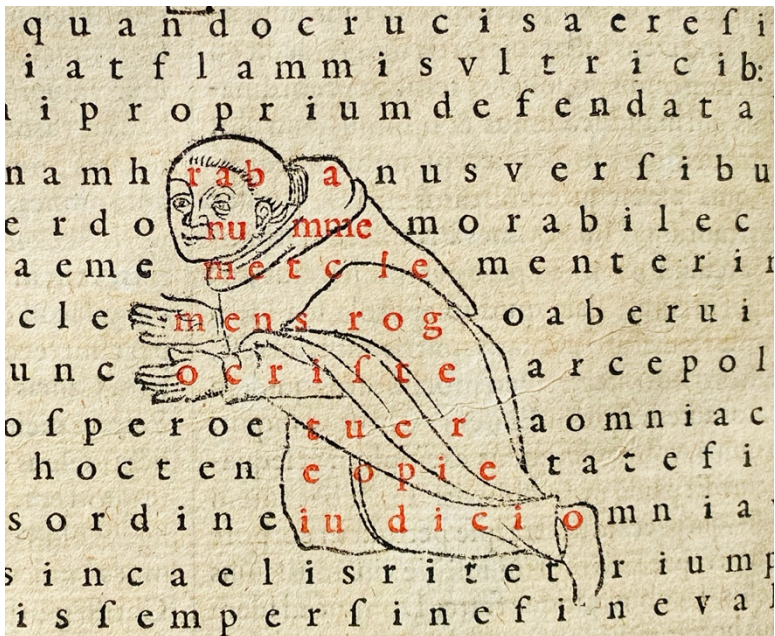 q u a n d o c r u c i s a e r e ſ i
i a t f l a m m i s v l t r i c i b:
i p r o p r i u m d e f e n d a t a
n a m h r a b a n u s v e r ſ i b u
e r d o nu mme m o r a b i l e c
a e m e m e t c l e m e n t e r i n
c l e m e n s r o g o a b e r u i
u n c o c r i ſ t e a r c e p o l
o ſ p e r o e t u e r a o m n i a c
h o c t e n e o p i e t a t e f i
s o r d i n e i u d i c i o m n i a
s i n c a e l i s r i t e t r i u m p
i s ſ e m p e r ſ i n e f i n e v a l